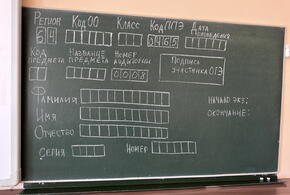 Регион Код ОО Класс Код ППЭ Дата проведения
64 3465
Код предмета Название предмета Номер аудитории
0008
Подпись участника ОГЭ
Фамилия
Имя
Отчество
Начало экз:
Окончание:
Серия Номер